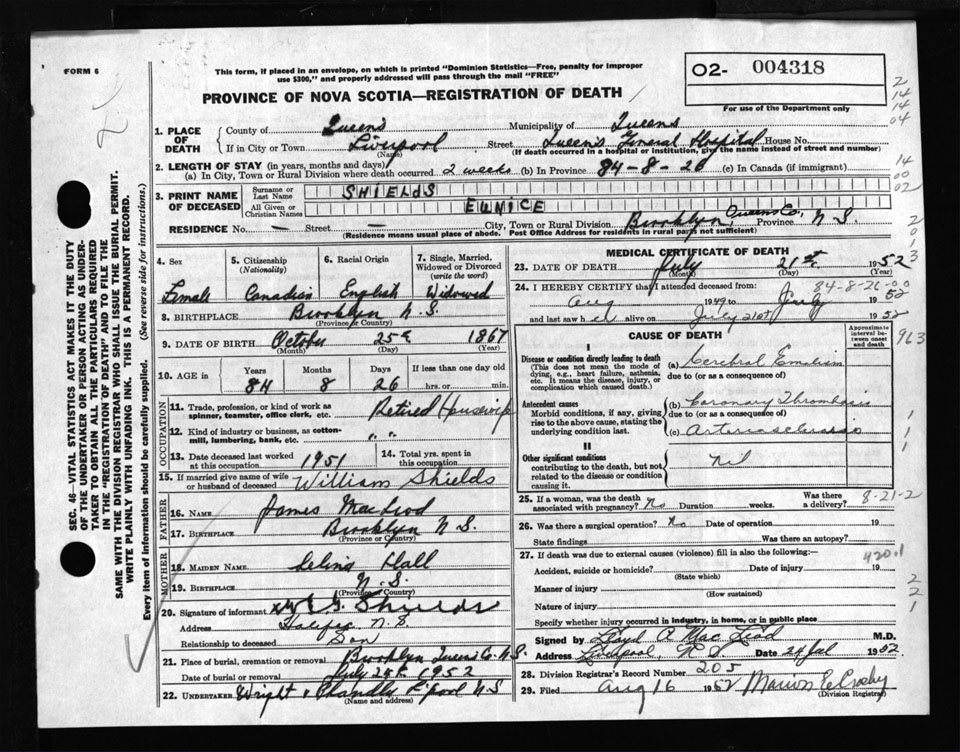 FORM 6
This form, if placed in an envelope, on which is printed "Dominion Statistics—Free, penalty for improper use $300," and properly addressed will pass through the mail "FREE"
02- 004318
For use of the Department only
PROVINCE OF NOVA SCOTIA—REGISTRATION OF DEATH
2
14
14
04
14
00
02
2
0
1
3
963
1
1
2
2
1
SEC. 46—VITAL STATISTICS ACT MAKES IT THE DUTY
OF THE UNDERTAKER OR PERSON ACTING AS UNDER-
TAKER TO OBTAIN ALL THE PARTICULARS REQUIRED
IN THE "REGISTRATION OF DEATH" AND TO FILE THE
SAME WITH THE DIVISION REGISTRAR WHO SHALL ISSUE THE BURIAL PERMIT.
WRITE PLAINLY WITH UNFADING INK. THIS IS A PERMANENT RECORD.
Every item of information should be carefully supplied. (See reverse side for instructions.)
1. PLACE OF DEATH
County of Queens Municipality of Queens
If in City or Town Liverpool Street Queens General Hospital House No.
(Name) (If death occurred in a hospital or institution, give the name instead of street and number)
2. LENGTH OF STAY (in years, months and days)
(a) In City, Town or Rural Division where death occurred 2 weeks (b) In Province 84-8-26 (c) In Canada (if immigrant)
3. PRINT NAME OF DECEASED
Surname or Last Name SHIELDS
All Given or Christian Names EUNICE
RESIDENCE No. — Street — City, Town or Rural Division Brooklyn, Queens Co. Province N S.
(Residence means usual place of abode. Post Office Address for residents in rural parts not sufficient)
4. Sex Female
5. Citizenship (Nationality) Canadian
6. Racial Origin English
7. Single, Married, Widowed or Divorced (write the word) Widowed
8. BIRTHPLACE Brooklyn N.S.
(Province or Country)
9. DATE OF BIRTH October 25th 1867
(Month) (Day) (Year)
10. AGE in Years 84 Months 8 Days 26 If less than one day hrs. or min.
OCCUPATION
11. Trade, profession, or kind of work as spinner, teamster, office clerk, etc. Retired Housewife
12. Kind of industry or business, as cotton-mill, lumbering, bank, etc. " "
13. Date deceased last worked at this occupation 1951
14. Total yrs. spent in this occupation
15. If married give name of wife or husband of deceased William Shields
FATHER
16. NAME James MacLeod
17. BIRTHPLACE Brooklyn N.S.
(Province or Country)
MOTHER
18. MAIDEN NAME Hall
19. BIRTHPLACE N.S.
(Province or Country)
20. Signature of informant Shields
Address Halifax N.S.
Relationship to deceased Son
21. Place of burial, cremation or removal Brooklyn Queens Co. N.S.
Date of burial or removal July 24th 1952
22. UNDERTAKER Wright L'pool N S
(Name and address)
MEDICAL CERTIFICATE OF DEATH
23. DATE OF DEATH July 21st 1952
(Month) (Day) (Year)
84-8-26-0.0
24. I HEREBY CERTIFY that I attended deceased from:
Aug 1949 to July 1952
and last saw her alive on July 21st 1952
CAUSE OF DEATH
Approximate interval between onset and death
I
Disease or condition directly leading to death
(This does not mean the mode of dying, e.g., heart failure, asthenia, etc. It means the disease, injury, or complication which caused death.)
(a) Cerebral Embolism
due to (or as a consequence of)
Antecedent causes
Morbid conditions, if any, giving rise to the above cause, stating the underlying condition last.
(b) Coronary Thrombosis
due to (or as a consequence of)
(c) Arteriosclerosis
II
Other significant conditions
contributing to the death, but not related to the disease or condition causing it.
Nil
8-21-2
25. If a woman, was the death associated with pregnancy? No Duration weeks. Was there a delivery?
26. Was there a surgical operation? No Date of operation 19
State findings Was there an autopsy?
27. If death was due to external causes (violence) fill in also the following:— 420.1
Accident, suicide or homicide? Date of injury 19
(State which)
Manner of injury
(How sustained)
Nature of injury
Specify whether injury occurred in industry, in home, or in public place
Signed by Lloyd A. MacLeod M.D.
Address Liverpool, N S Date 24 Jul 1952
28. Division Registrar's Record Number 205
29. Filed Aug 16 1952 Marion E Crosby
(Division Registrar)